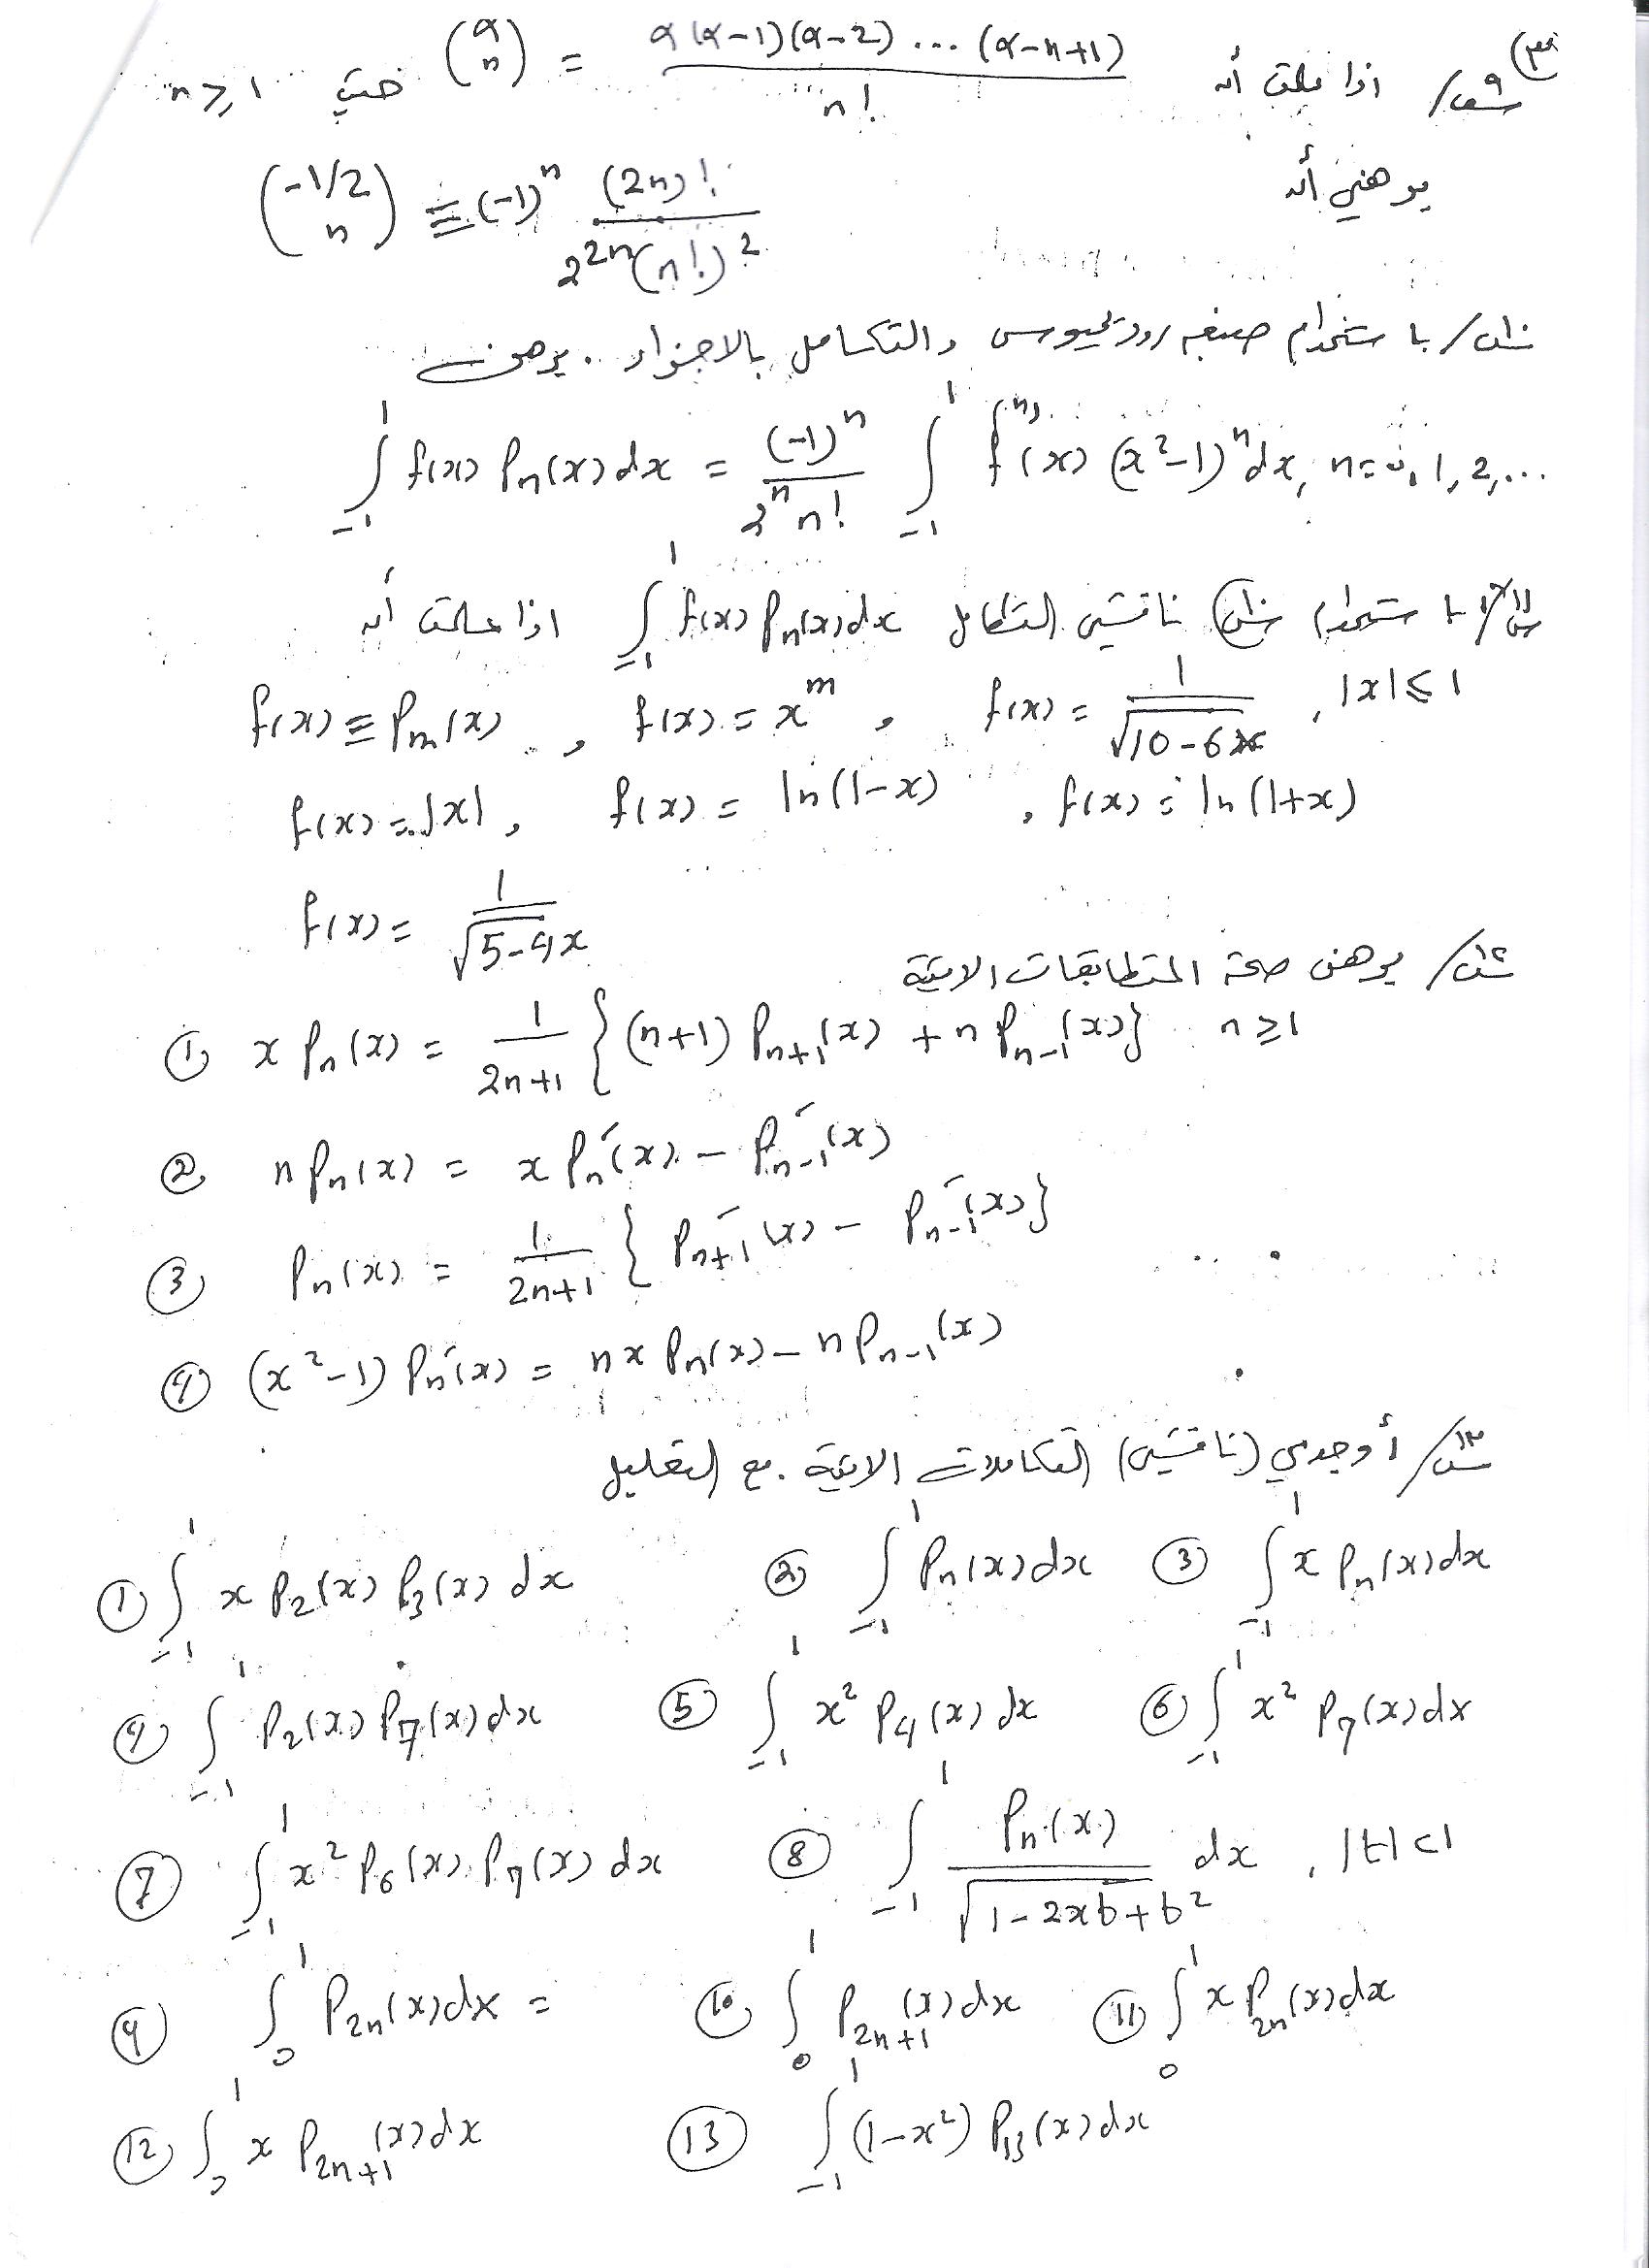 (٣
س٩/ اذا علمت أن (α n) = α(α-1)(α-2)...(α-n+1) / n! حيث n ≥ 1
برهني أن
(-1/2 n) ≡ (-1)^n (2n)! / 2^{2n}(n!)^2
س١٠/ باستخدام صيغه رودريجيوس والتكامل بالاجزاء. برهن
∫_{-1}^{1} f(x) P_n(x) dx = (-1)^n / 2^n n! ∫_{-1}^{1} f^{(n)}(x) (x^2-1)^n dx, n=0,1,2,...
س١١/ باستخدام س١٠ ناقشي التكامل ∫_{-1}^{1} f(x) P_n(x) dx اذا علمت أن
f(x) ≡ P_m(x) , f(x) = x^m , f(x) = 1/√(10-6x) , |x| ≤ 1
f(x) = |x| , f(x) = ln(1-x) , f(x) = ln(1+x)
f(x) = 1/√(5-4x)
س١٢/ برهن صحة المتطابقات الاتية
① x P_n(x) = 1/(2n+1) {(n+1) P_{n+1}(x) + n P_{n-1}(x)} n ≥ 1
② n P_n(x) = x P_n'(x) - P_{n-1}'(x)
③ P_n(x) = 1/(2n+1) { P_{n+1}'(x) - P_{n-1}'(x)}
④ (x^2-1) P_n'(x) = n x P_n(x) - n P_{n-1}(x)
س١٣/ أوجدي (ناقشي) التكاملات الاتية. مع التعليل
① ∫_{-1}^{1} x P_2(x) P_3(x) dx ② ∫_{-1}^{1} P_n(x) dx ③ ∫_{-1}^{1} x P_n(x) dx
④ ∫_{-1}^{1} P_2(x) P_7(x) dx ⑤ ∫_{-1}^{1} x^2 P_4(x) dx ⑥ ∫_{-1}^{1} x^2 P_7(x) dx
⑦ ∫_{-1}^{1} x^2 P_6(x) P_7(x) dx ⑧ ∫_{-1}^{1} P_n(x) / √(1-2xt+t^2) dx , |t| < 1
⑨ ∫_0^1 P_{2n}(x) dx = ⑩ ∫_0^1 P_{2n+1}(x) dx ⑪ ∫_0^1 x P_{2n}(x) dx
⑫ ∫_0^1 x P_{2n+1}(x) dx ⑬ ∫_{-1}^{1} (1-x^2) P_{13}(x) dx